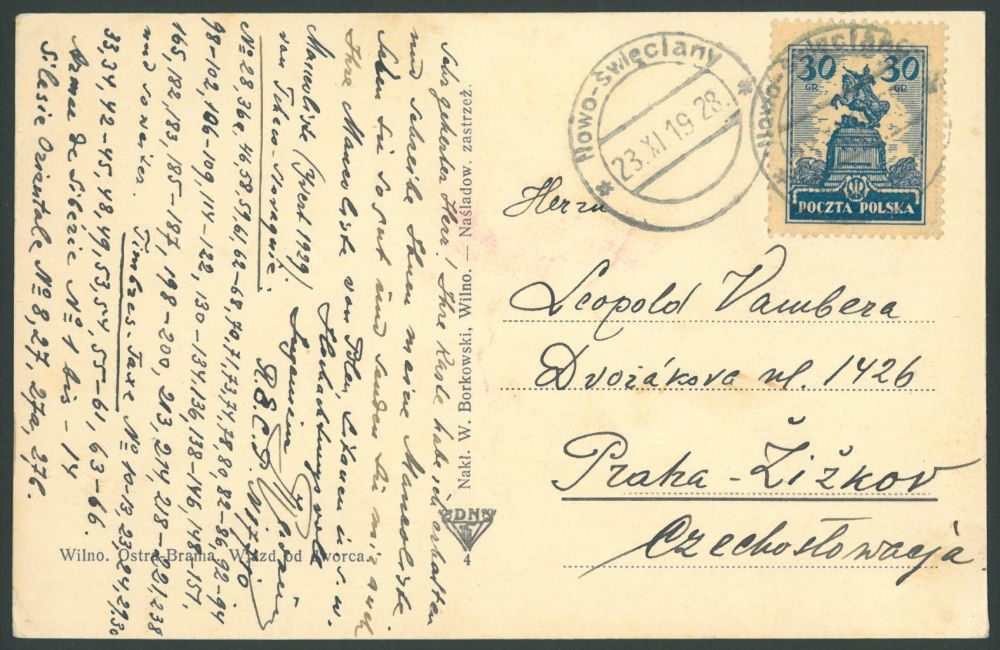 Sehr geehrter Herr! Ihre Karte habe ich erhalten
und schreibe Ihnen meine Mancoliste.
Seien Sie so gut und senden Sie mir auch
Ihre Mancoliste von Polen, Litauen u. s. w.
Hochachtungsvoll
Eugeniusz
Mancoliste (Yvert 1929)
von Tcheco-Slovaquie:
№ 28, 36a, 46, 58, 59, 61, 62-68, 70, 71, 73, 74, 78, 80, 82-86, 92-94
98-102, 106-109, 114-122, 130-134, 136, 138-146, 148-151,
165, 182, 183, 185-187, 198-200, 213, 214, 218-221, 238
und so weiter
Timbres-Taxe № 10-13, 23, 24, 29, 30
33, 34, 42-45, 48, 49, 53, 54, 55-61, 63-66.
Armée de Sibérie № 1 bis - 14
Silesie Orientale № 8, 27, 27a, 27b.
Wilno. Ostra-Brama. Wjazd od dworca.
Nakł. W. Borkowski, Wilno. — Naśladow. zastrzeż.
DN
4
Nowo-Święciany
23.XI.19 28.
Nowo-Święciany
30 30
GR GR
POCZTA POLSKA
Herrn
Leopold Vambera
Dvořákova ul. 1426
Praha-Žižkov
Czechosłowacja